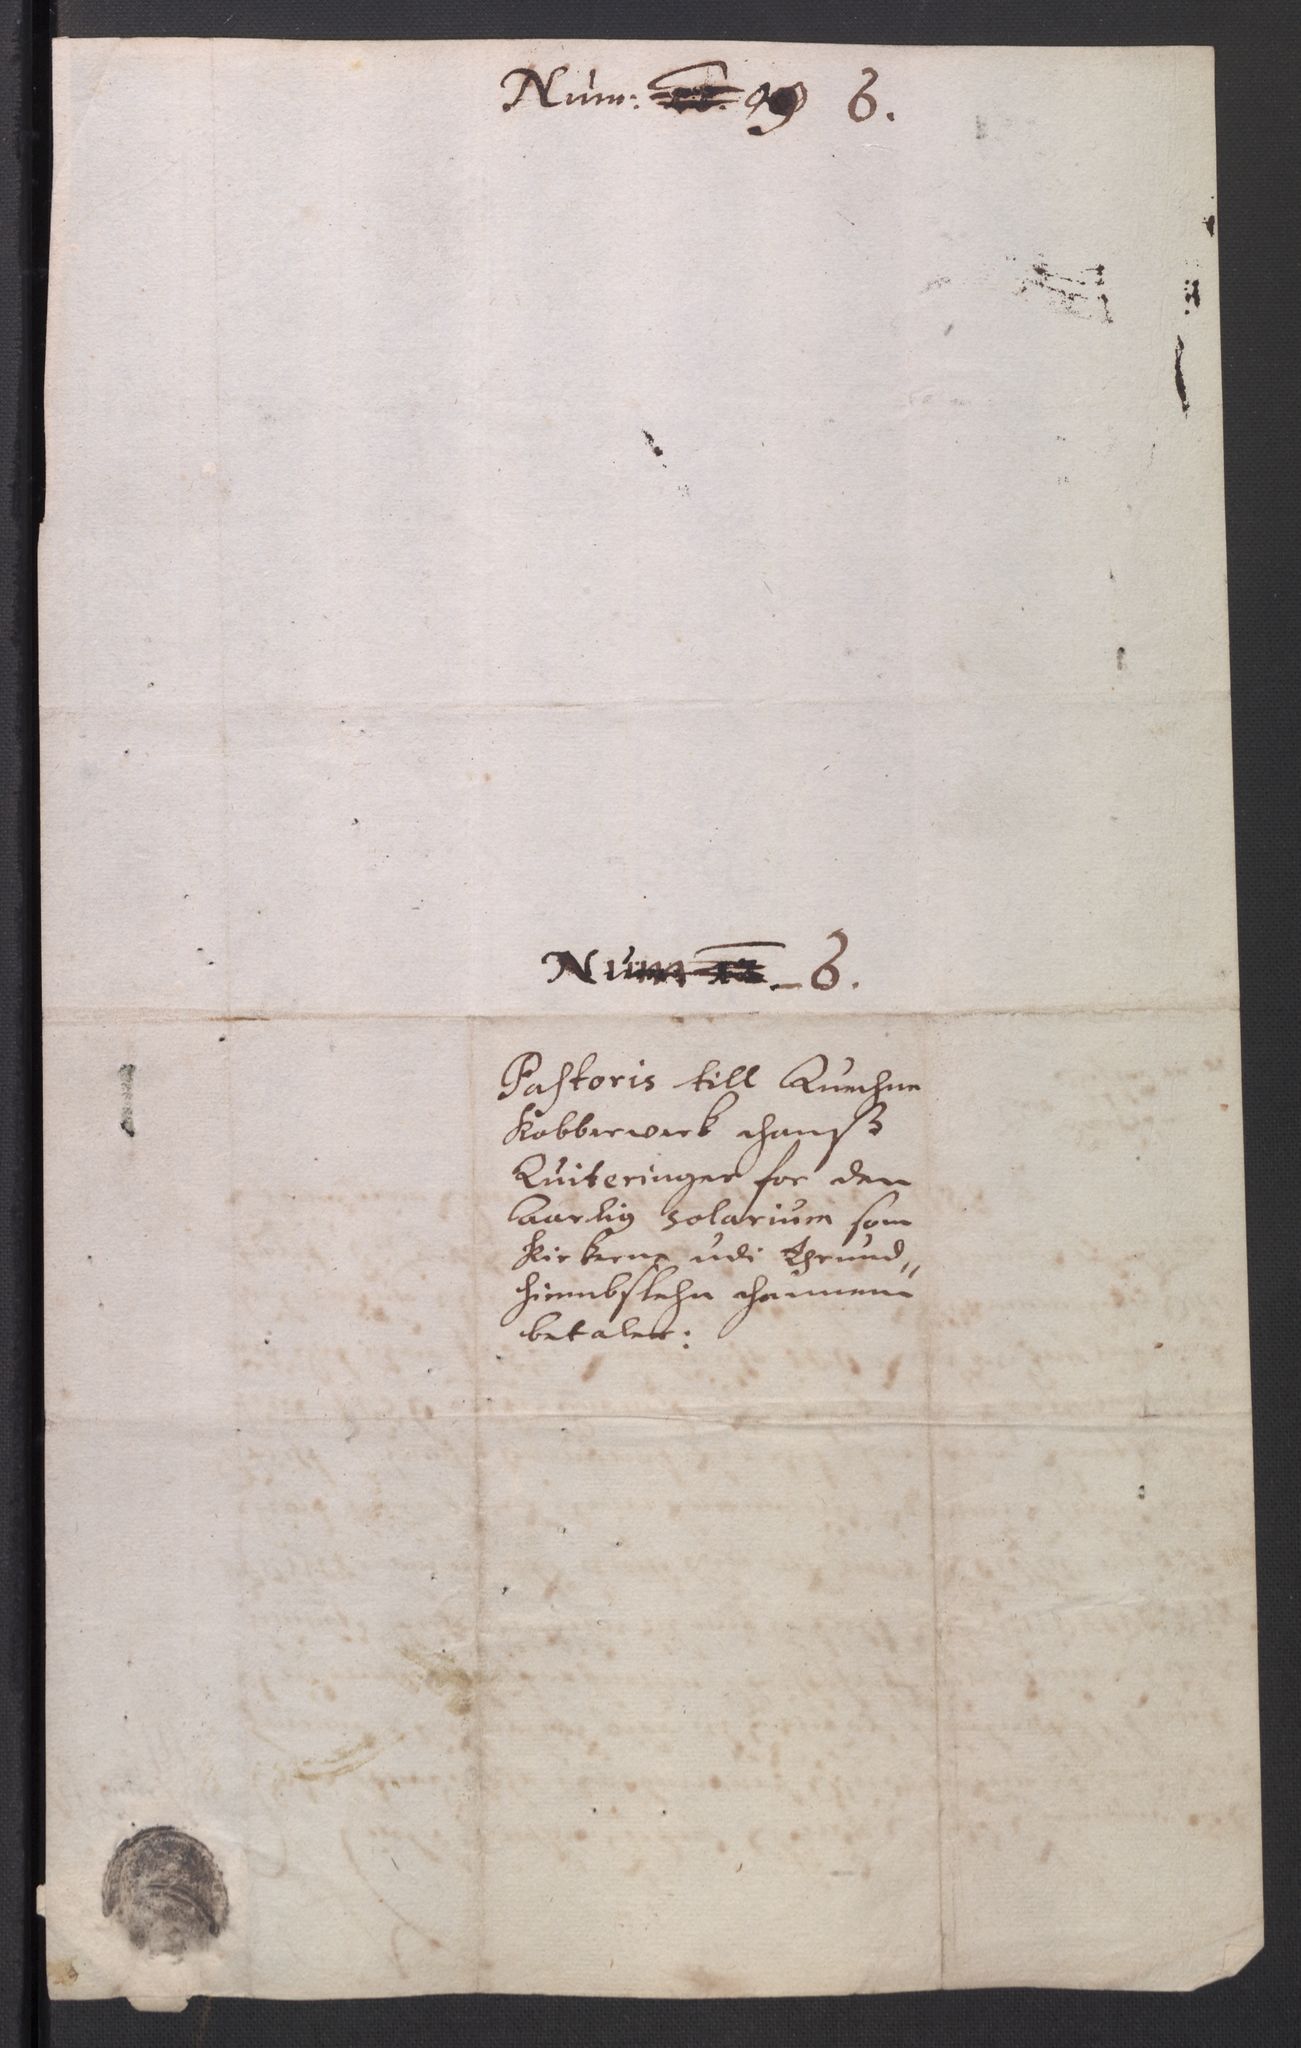 Num: 6.
Num 6.
Pastoris till Quechne
Kobberverk hanß
Quiteringer for den
aarlig solarium som
Kirkerne udi Thrund„
hiembslehn hannem
betaler: